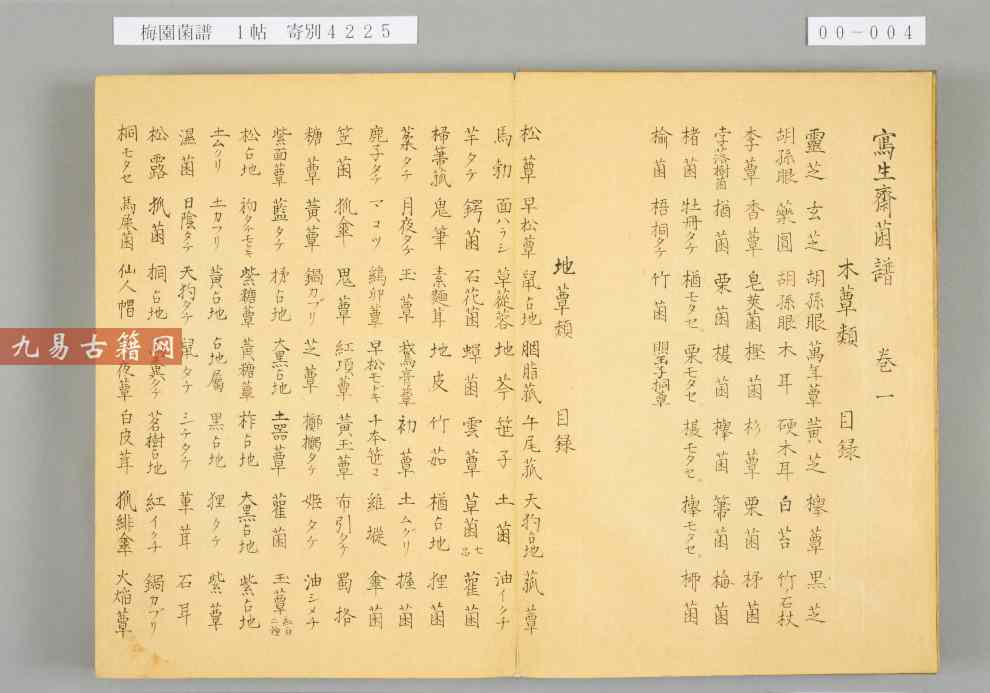 梅園菌譜 1帖 寄別4225
00-004
寫生齋菌譜 卷一
木蕈類 目録
靈芝 玄芝 胡孫眼 萬年蕈 黄芝 檪蕈 黒芝
胡孫眼 藥圓 胡孫眼 木耳 硬木耳 白苔 竹石杖
李蕈 香蕈 皂莢菌 樫菌 杉蕈 栗菌 栎菌
樹菌 楢菌 栗菌 榎菌 檪菌 箒菌 梅菌
楮菌 牡丹タケ 楢モタセ 栗モタセ 榎モタセ 檪モタセ 柳菌
楡菌 梧桐タケ 竹菌 桐蕈
地蕈類 目録
松蕈 早松蕈 鼠占地 胭脂菰 牛尾菰 天狗占地 菰蕈
馬勃 面ハラシ 草蓯蓉 地苓 笹子 土菌 油イクチ
羊タケ 鍔菌 石花菌 蟬菌 雲蕈 草菌 雚菌
掃箒菰 鬼筆 素麺耳 地皮 竹茹 楢占地 狸菌
蒸タケ 月夜タケ 玉蕈 鵞膏蕈 初蕈 土ムクリ 握菌
鹿子タケ マコツ 鷄卵蕈 早松モドキ 十本笹子 維縦 傘菌
笠菌 狐傘 鬼蕈 紅項蕈 黄玉蕈 布引タケ 蜀格
糖蕈 黄蕈 鍋カブリ 芝蕈 擲擲タケ 姫タケ 油シメチ
紫面蕈 藍タケ 栎占地 大黒占地 土器蕈 雚菌 玉蕈 紅白二種
松占地 初タケモドキ 紫糖蕈 黄糖蕈 柞占地 大黒占地 紫占地
土ムクリ 土カフリ 黄占地 占地屬 黒占地 狸タケ 紫蕈
濕菌 日陰タケ 天狗タケ 鼠タケ 三チタケ 葷茸 石耳
松露 狐菌 桐占地 茗樹占地 紅イクチ 鍋カブリ
桐モタセ 馬屎菌 仙人帽 夜蕈 白皮茸 狐緋傘 火焔蕈
九易古籍网